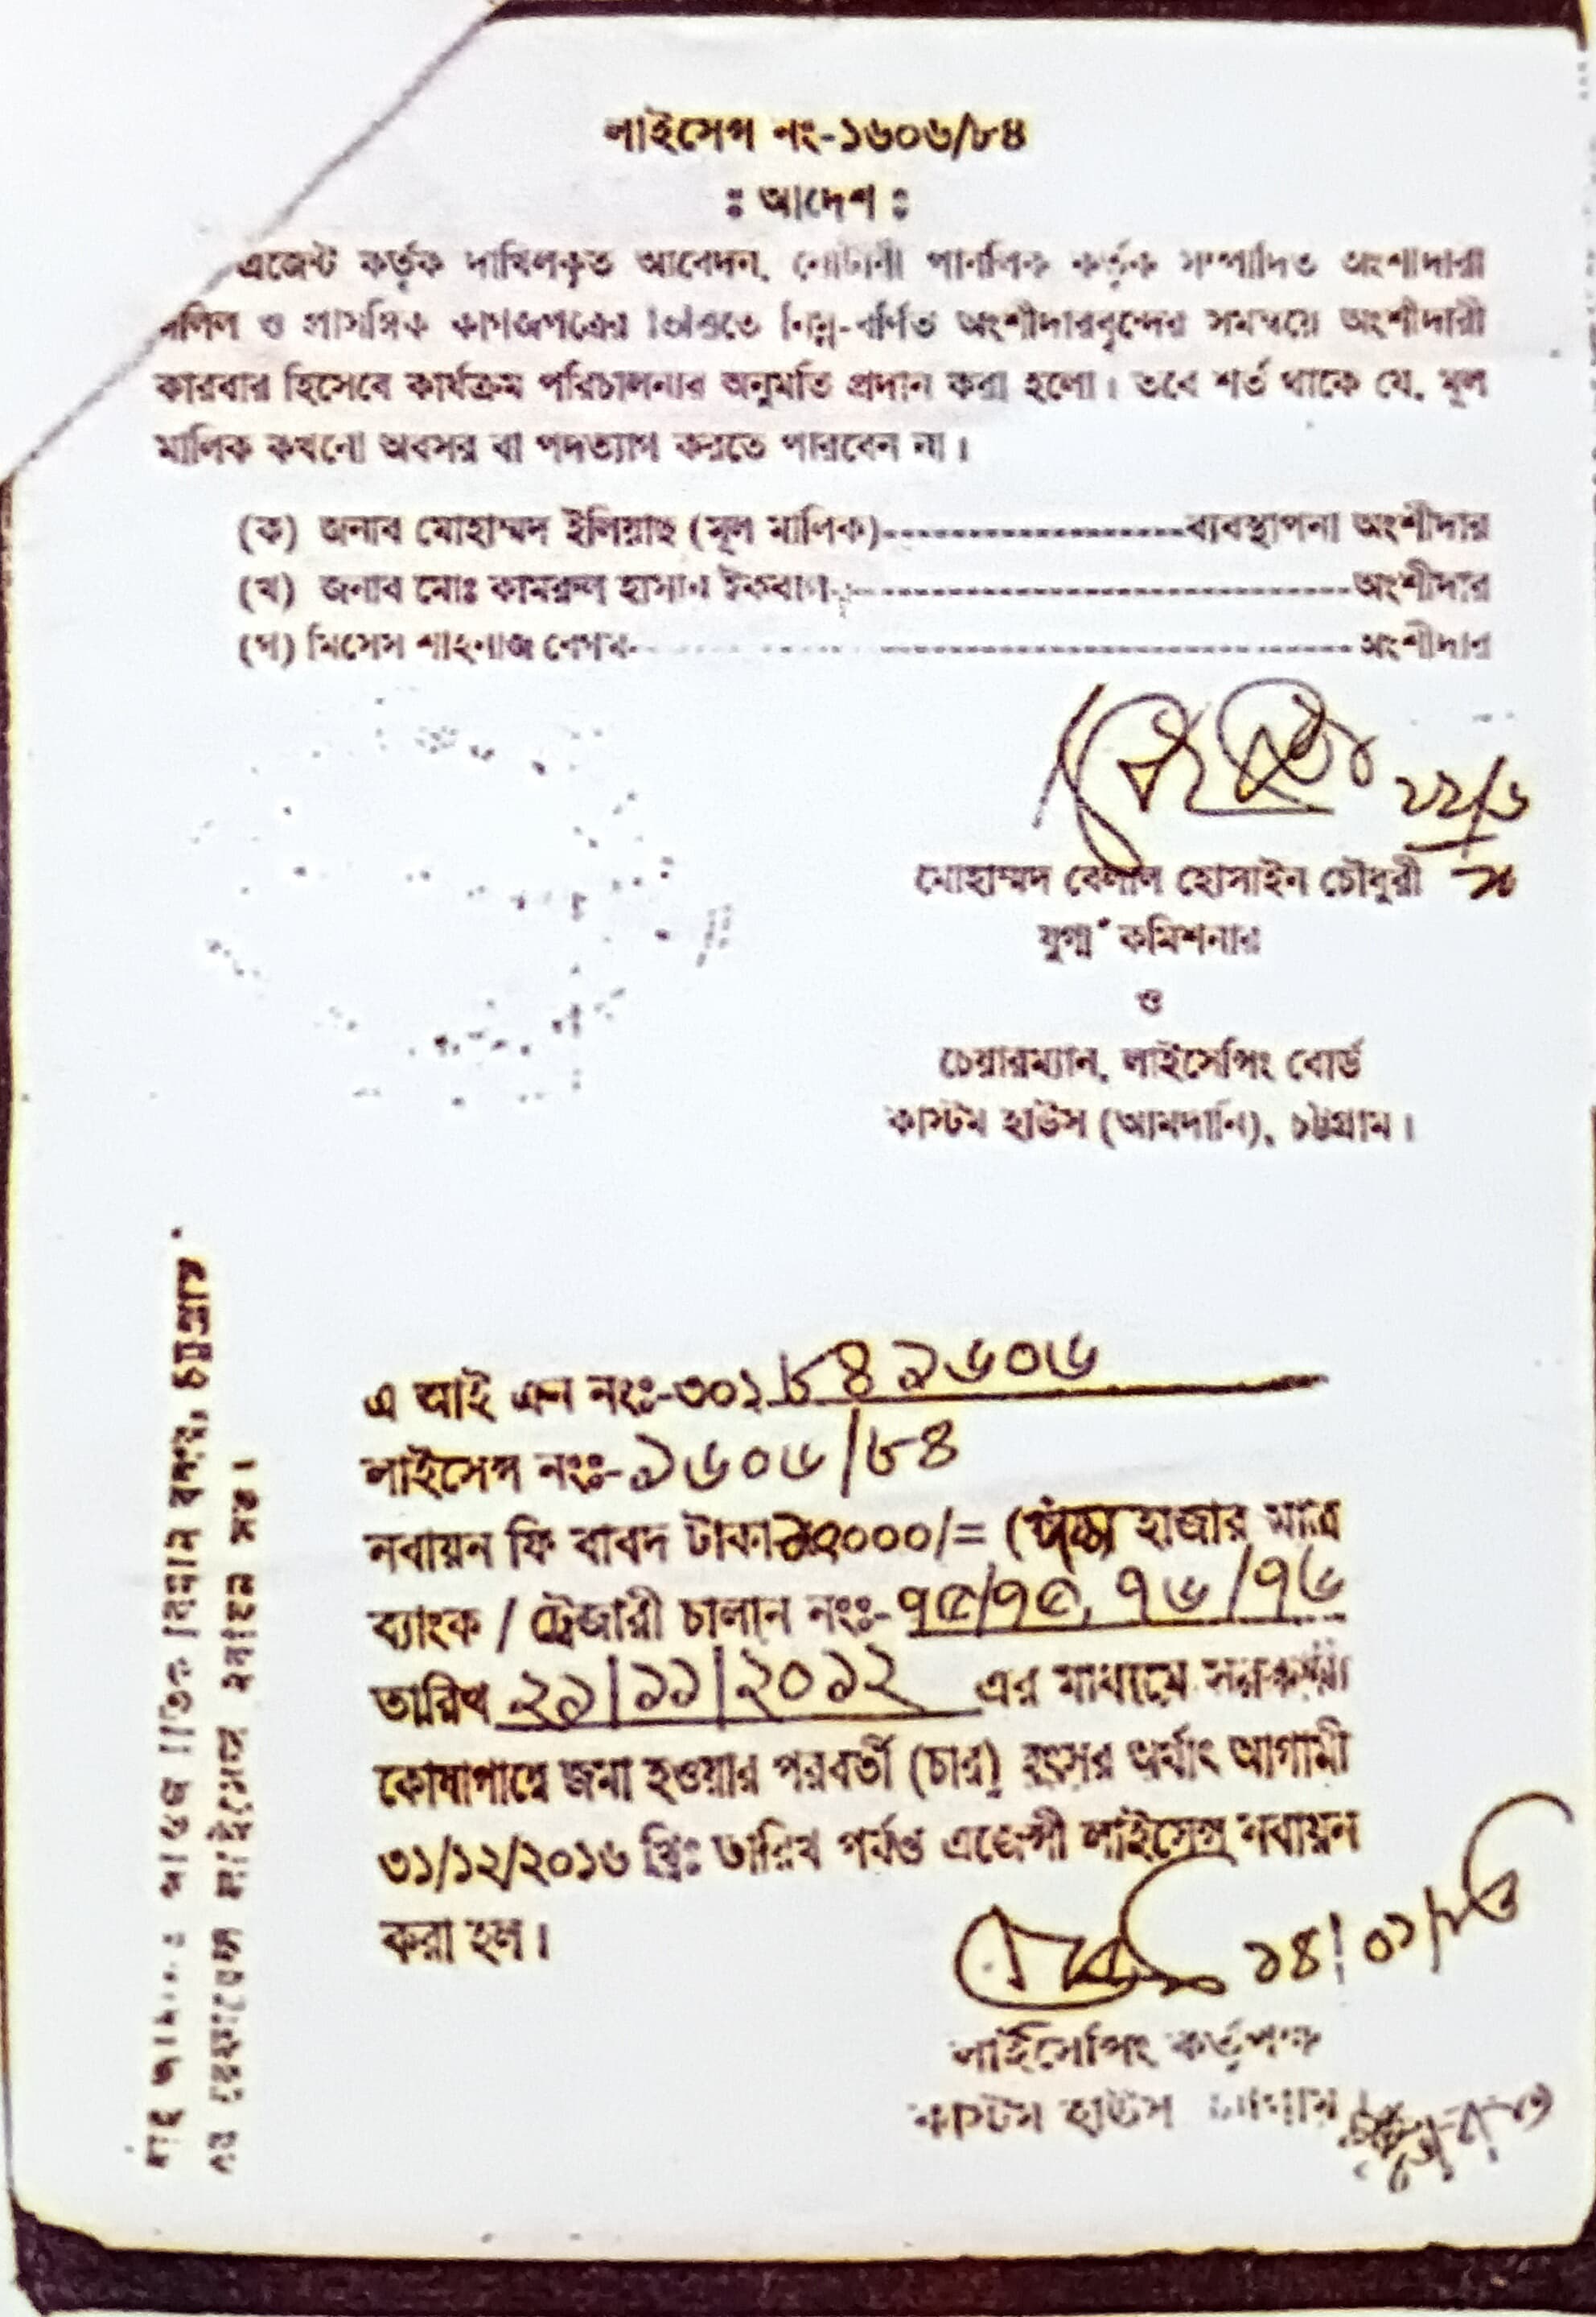 লাইসেন্স নং-১৬০৬/৮৪
ঃ আদেশ ঃ
এজেন্ট কর্তৃক দাখিলকৃত আবেদন, নোটারী পাবলিক কর্তৃক সম্পাদিত অংশীদারী
দলিল ও প্রাসঙ্গিক কাগজপত্রের ভিত্তিতে নিম্ন-বর্ণিত অংশীদারবৃন্দের সমন্বয়ে অংশীদারী
কারবার হিসেবে কার্যক্রম পরিচালনার অনুমতি প্রদান করা হলো। তবে শর্ত থাকে যে, মূল
মালিক কখনো অবসর বা পদত্যাগ করতে পারবেন না।
(ক) জনাব মোহাম্মদ ইলিয়াছ (মূল মালিক)--------------------ব্যবস্থাপনা অংশীদার
(খ) জনাব মোঃ কামরুল হাসান ইকবাল----------------------------------অংশীদার
(গ) মিসেস শাহনাজ বেগম----------------------------------------------অংশীদার
২২/৬
মোহাম্মদ বেলাল হোসাইন চৌধুরী
যুগ্ম কমিশনার
ও
চেয়ারম্যান, লাইসেন্সিং বোর্ড
কাস্টম হাউস (আমদানি), চট্টগ্রাম।
এ আই এন নংঃ-৩০১৮৪১৬০৬
লাইসেন্স নংঃ-১৬০৬/৮৪
নবায়ন ফি বাবদ টাকা ০০০/= ( হাজার মাত্র
ব্যাংক / ট্রেজারী চালান নংঃ-৭৫/৭৫, ৭৬/৭৬
তারিখ ২১/১১/২০১২ এর মাধ্যমে সরকারী
কোষাগারে জমা হওয়ার পরবর্তী (চার) বৎসর অর্থাৎ আগামী
৩১/১২/২০১৬ খ্রিঃ তারিখ পর্যন্ত এজেন্সী লাইসেন্স নবায়ন
করা হল।
১৪/০১/১৩
লাইসেন্সিং কর্তৃপক্ষ
কাস্টম হাউস
বিমান বন্দর, চট্টগ্রাম
এর রেফারেন্স লাইসেন্স